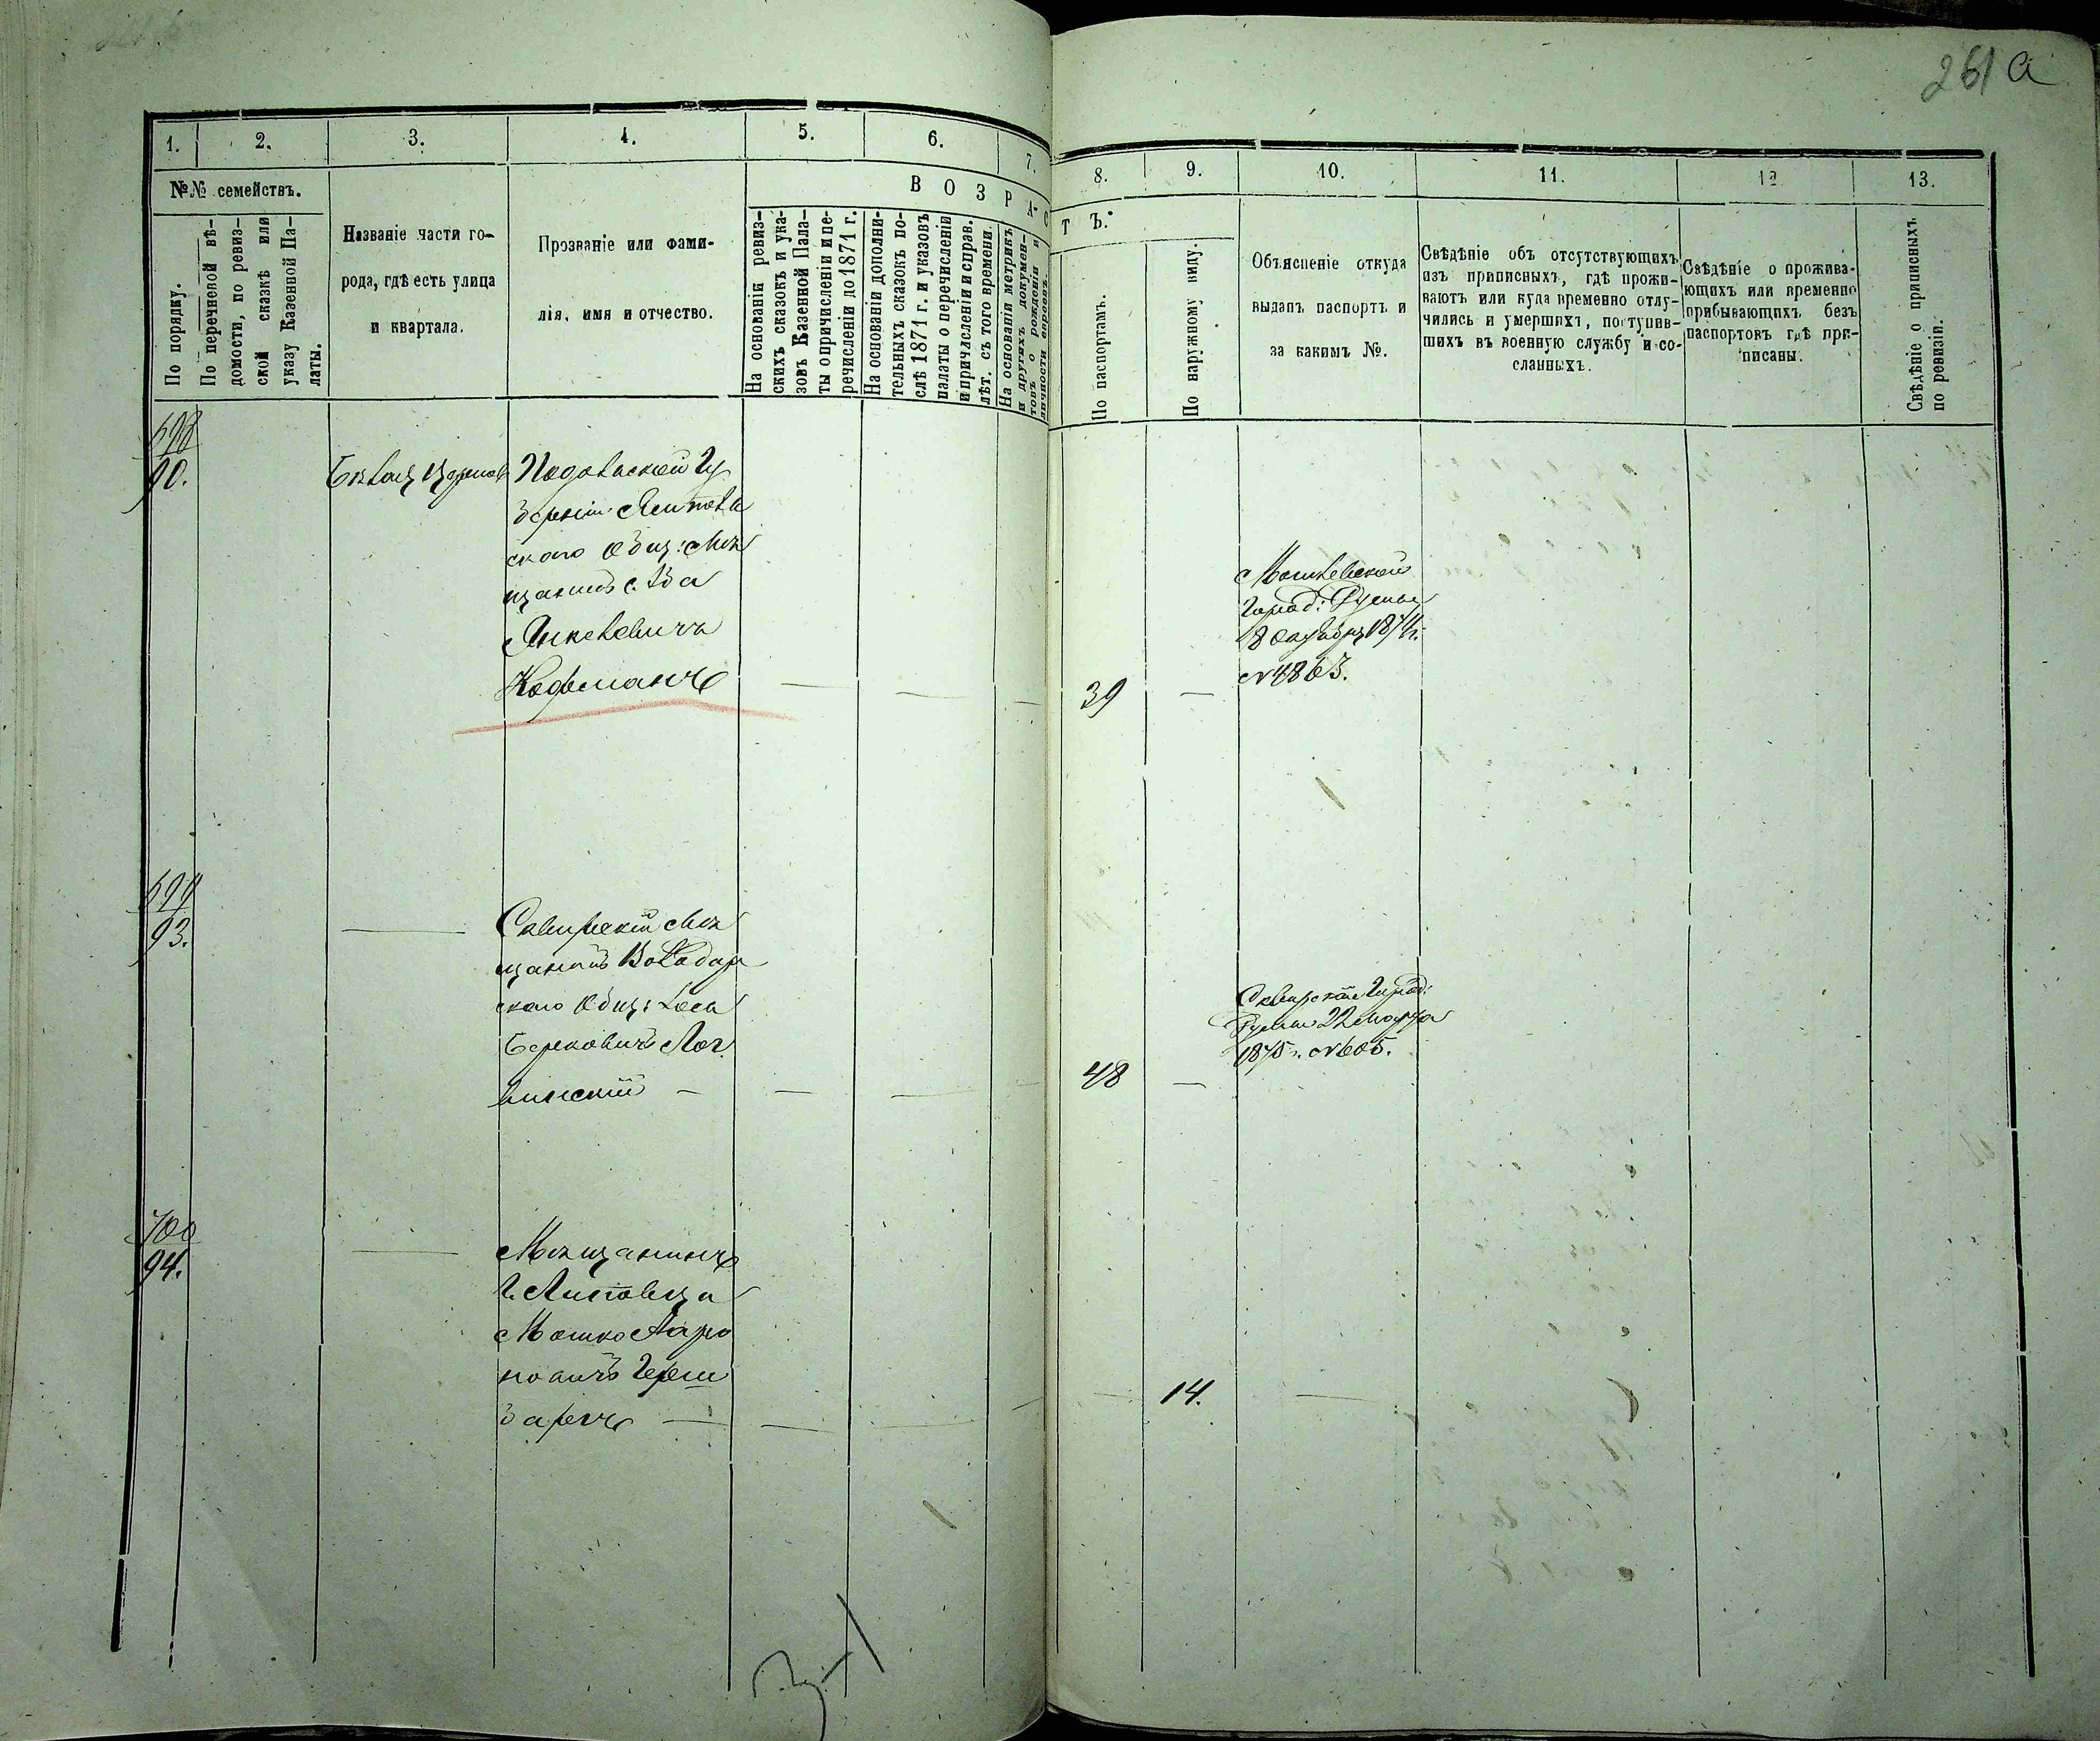 261 а
1.
2.
3.
4.
5.
6.
7.
8.
9.
10.
11.
12
13.
№№ семействъ.
По порядку.
По перечневой вѣ-
домости, по ревиз-
ской сказкѣ или
указу Казенной Па-
латы.
Названіе части го-
рода, гдѣ есть улица
и квартала.
Прозваніе или фами-
лія, имя и отчество.
ВОЗРАС
ТЪ.
На основаніи ревиз-
скихъ сказокъ и ука-
зовъ Казенной Пала-
ты о причисленіи и пе-
речисленіи до 1871 г.
На основаніи дополни-
тельныхъ сказокъ по-
слѣ 1871 г. и указовъ
палаты о перечисленіи
и причисленіи и справ.
лѣт. съ того времени.
На основаніи метрикъ
и другихъ докумен-
товъ о рожденіи и
личности евреевъ.
По паспортамъ.
По наружному виду.
Объясненіе откуда
выданъ паспортъ и
за какимъ №.
Свѣдѣніе объ отсутствующихъ
изъ приписныхъ, гдѣ прожи-
ваютъ или куда временно отлу-
чились и умершихъ, поступив-
шихъ въ военную службу и со-
сланныхъ.
Свѣдѣніе о прожива-
ющихъ или временно
прибывающихъ безъ
паспортовъ гдѣ при-
писаны.
Свѣдѣніе о приписныхъ
по ревизіи.
698
90.
Подольской Гу
берніи Литов
скаго Общ: Мѣ
щанинъ
Янкелевичъ
Кофманъ
39
Город: Думы
18 1874 г.
№ 4863.
699
93.
Сквирскій Мѣ
щанинъ Володар
скаго Общ:
Берковичъ Лог
винскій
48
Сквирской Город:
Думы 22 Марта
1875 г. № 605.
700
94.
Мѣщанинъ
г. Липовца
Мошко Ааро
новичъ Герш
баргъ
14.